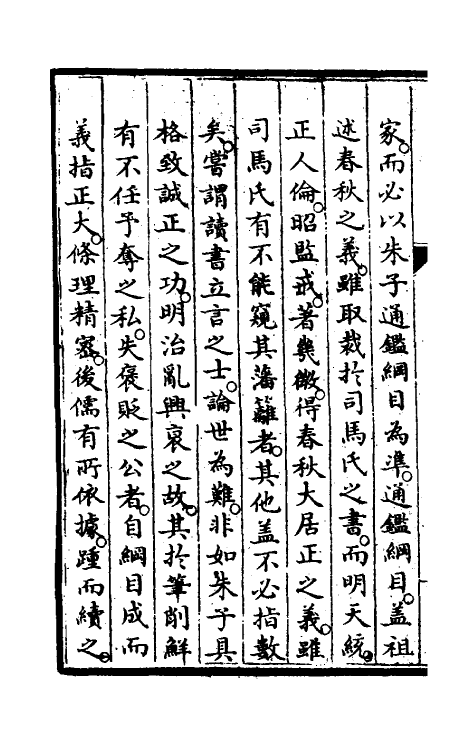 家。而必以朱子通鑑綱目為準。通鑑綱目。盖祖
述春秋之義。雖取裁扵司馬氏之書。而明天統。
正人倫。昭監戒。著㡬微。得春秋大居正之義。雖
司馬氏有不能窺其藩籬者。其他盖不必指數
矣。嘗謂讀書立言之士。論世為難。非如朱子具
格致誠正之功。明治亂興衰之故。其扵筆削鮮
有不任予奪之私。失褒貶之公者。自綱目成而
義指正大。條理精密。後儒有所依據。踵而續之。